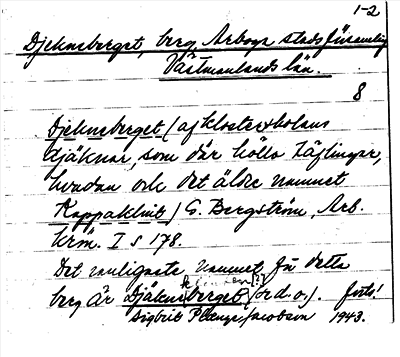 1-2
Djekneberget, berg, Arboga stadsförsamling
Västmanlands län.
8
Djekneberget (af klosterskolans
djäknar, som där höllo täflingar,
hvadan ock det äldre namnet
Kappaklint) G. Bergström, Arb.
krön. I s 178.
Det vanligaste namnet på detta
berg är Djäkneberget (ordo.). forts!
Sigbrit Plænge Jacobson 1943.